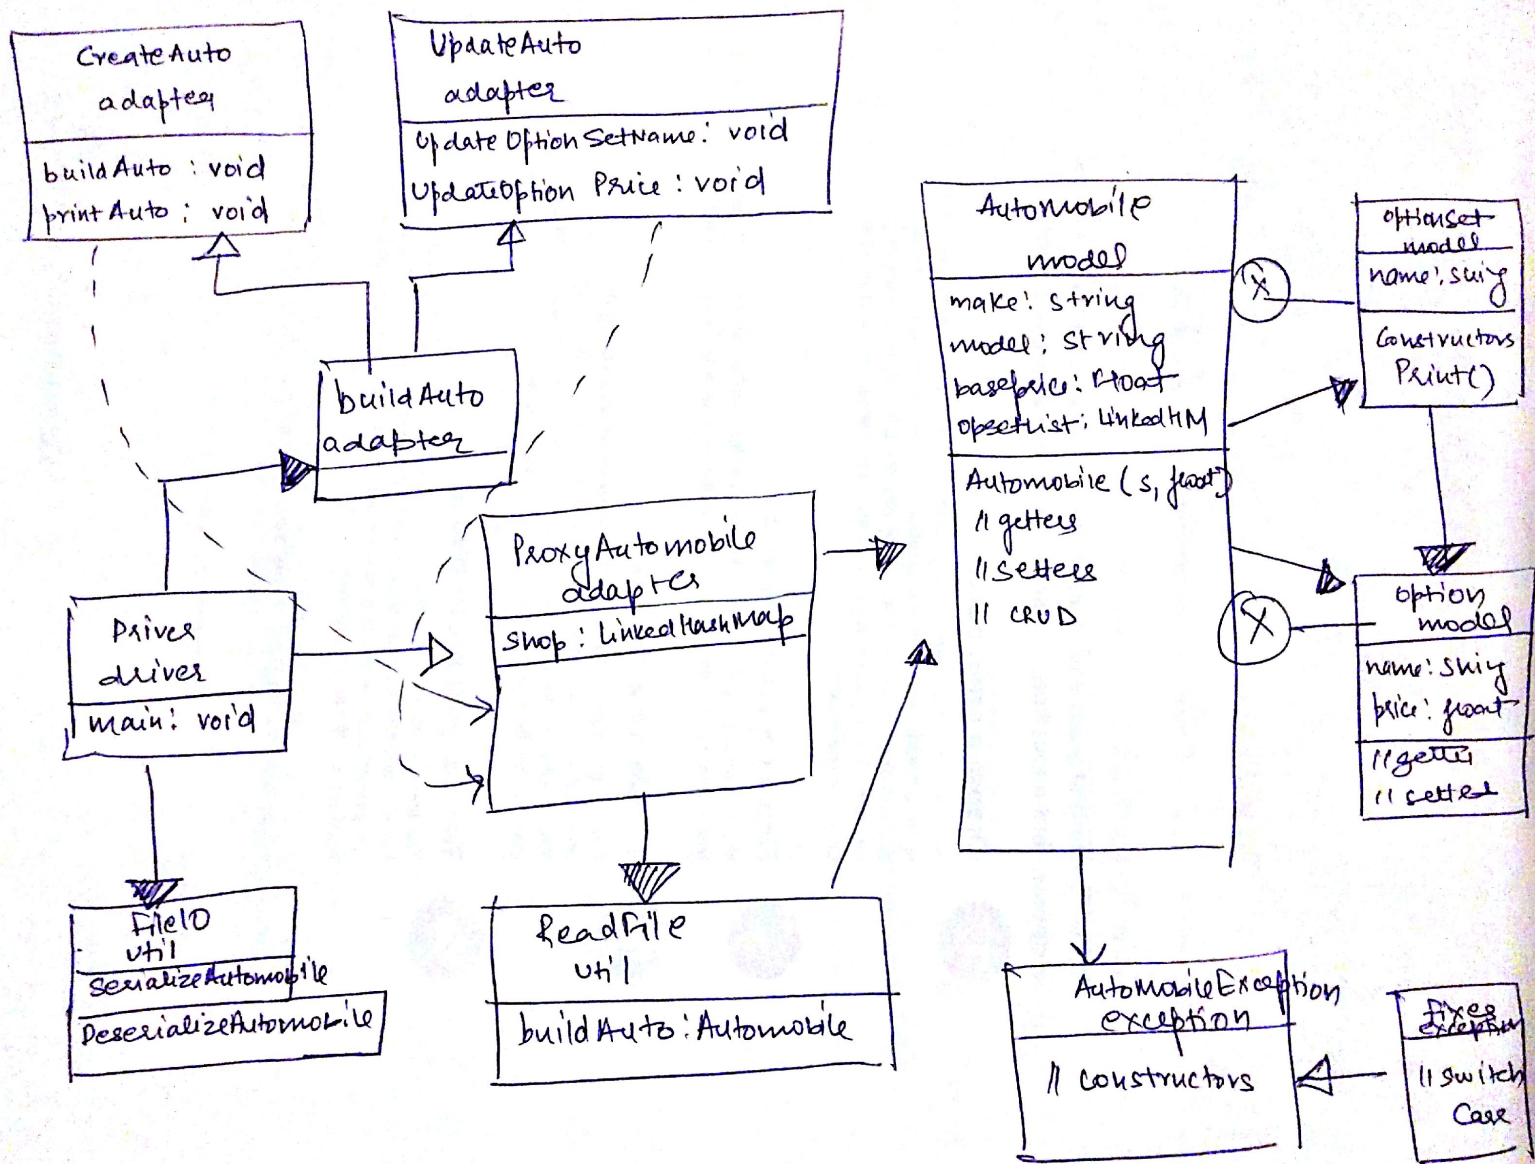 CreateAuto
adapter
buildAuto : void
printAuto : void
UpdateAuto
adapter
Update OptionSetName : void
UpdateOption Price : void
buildAuto
adapter
Driver
driver
main : void
ProxyAutomobile
adapter
shop : LinkedHashMap
FileIO
util
SerializeAutomobile
DeserializeAutomobile
ReadFile
util
buildAuto : Automobile
Automobile
model
make : String
model : String
baseprice : Float
opsetlist : LinkedHM
Automobile (s, float)
// getters
// setters
// CRUD
X
X
OptionSet
model
name : String
Constructors
Print()
option
model
name : String
price : float
// getter
// setter
AutomobileException
exception
// constructors
fixes
exception
// switch
Case